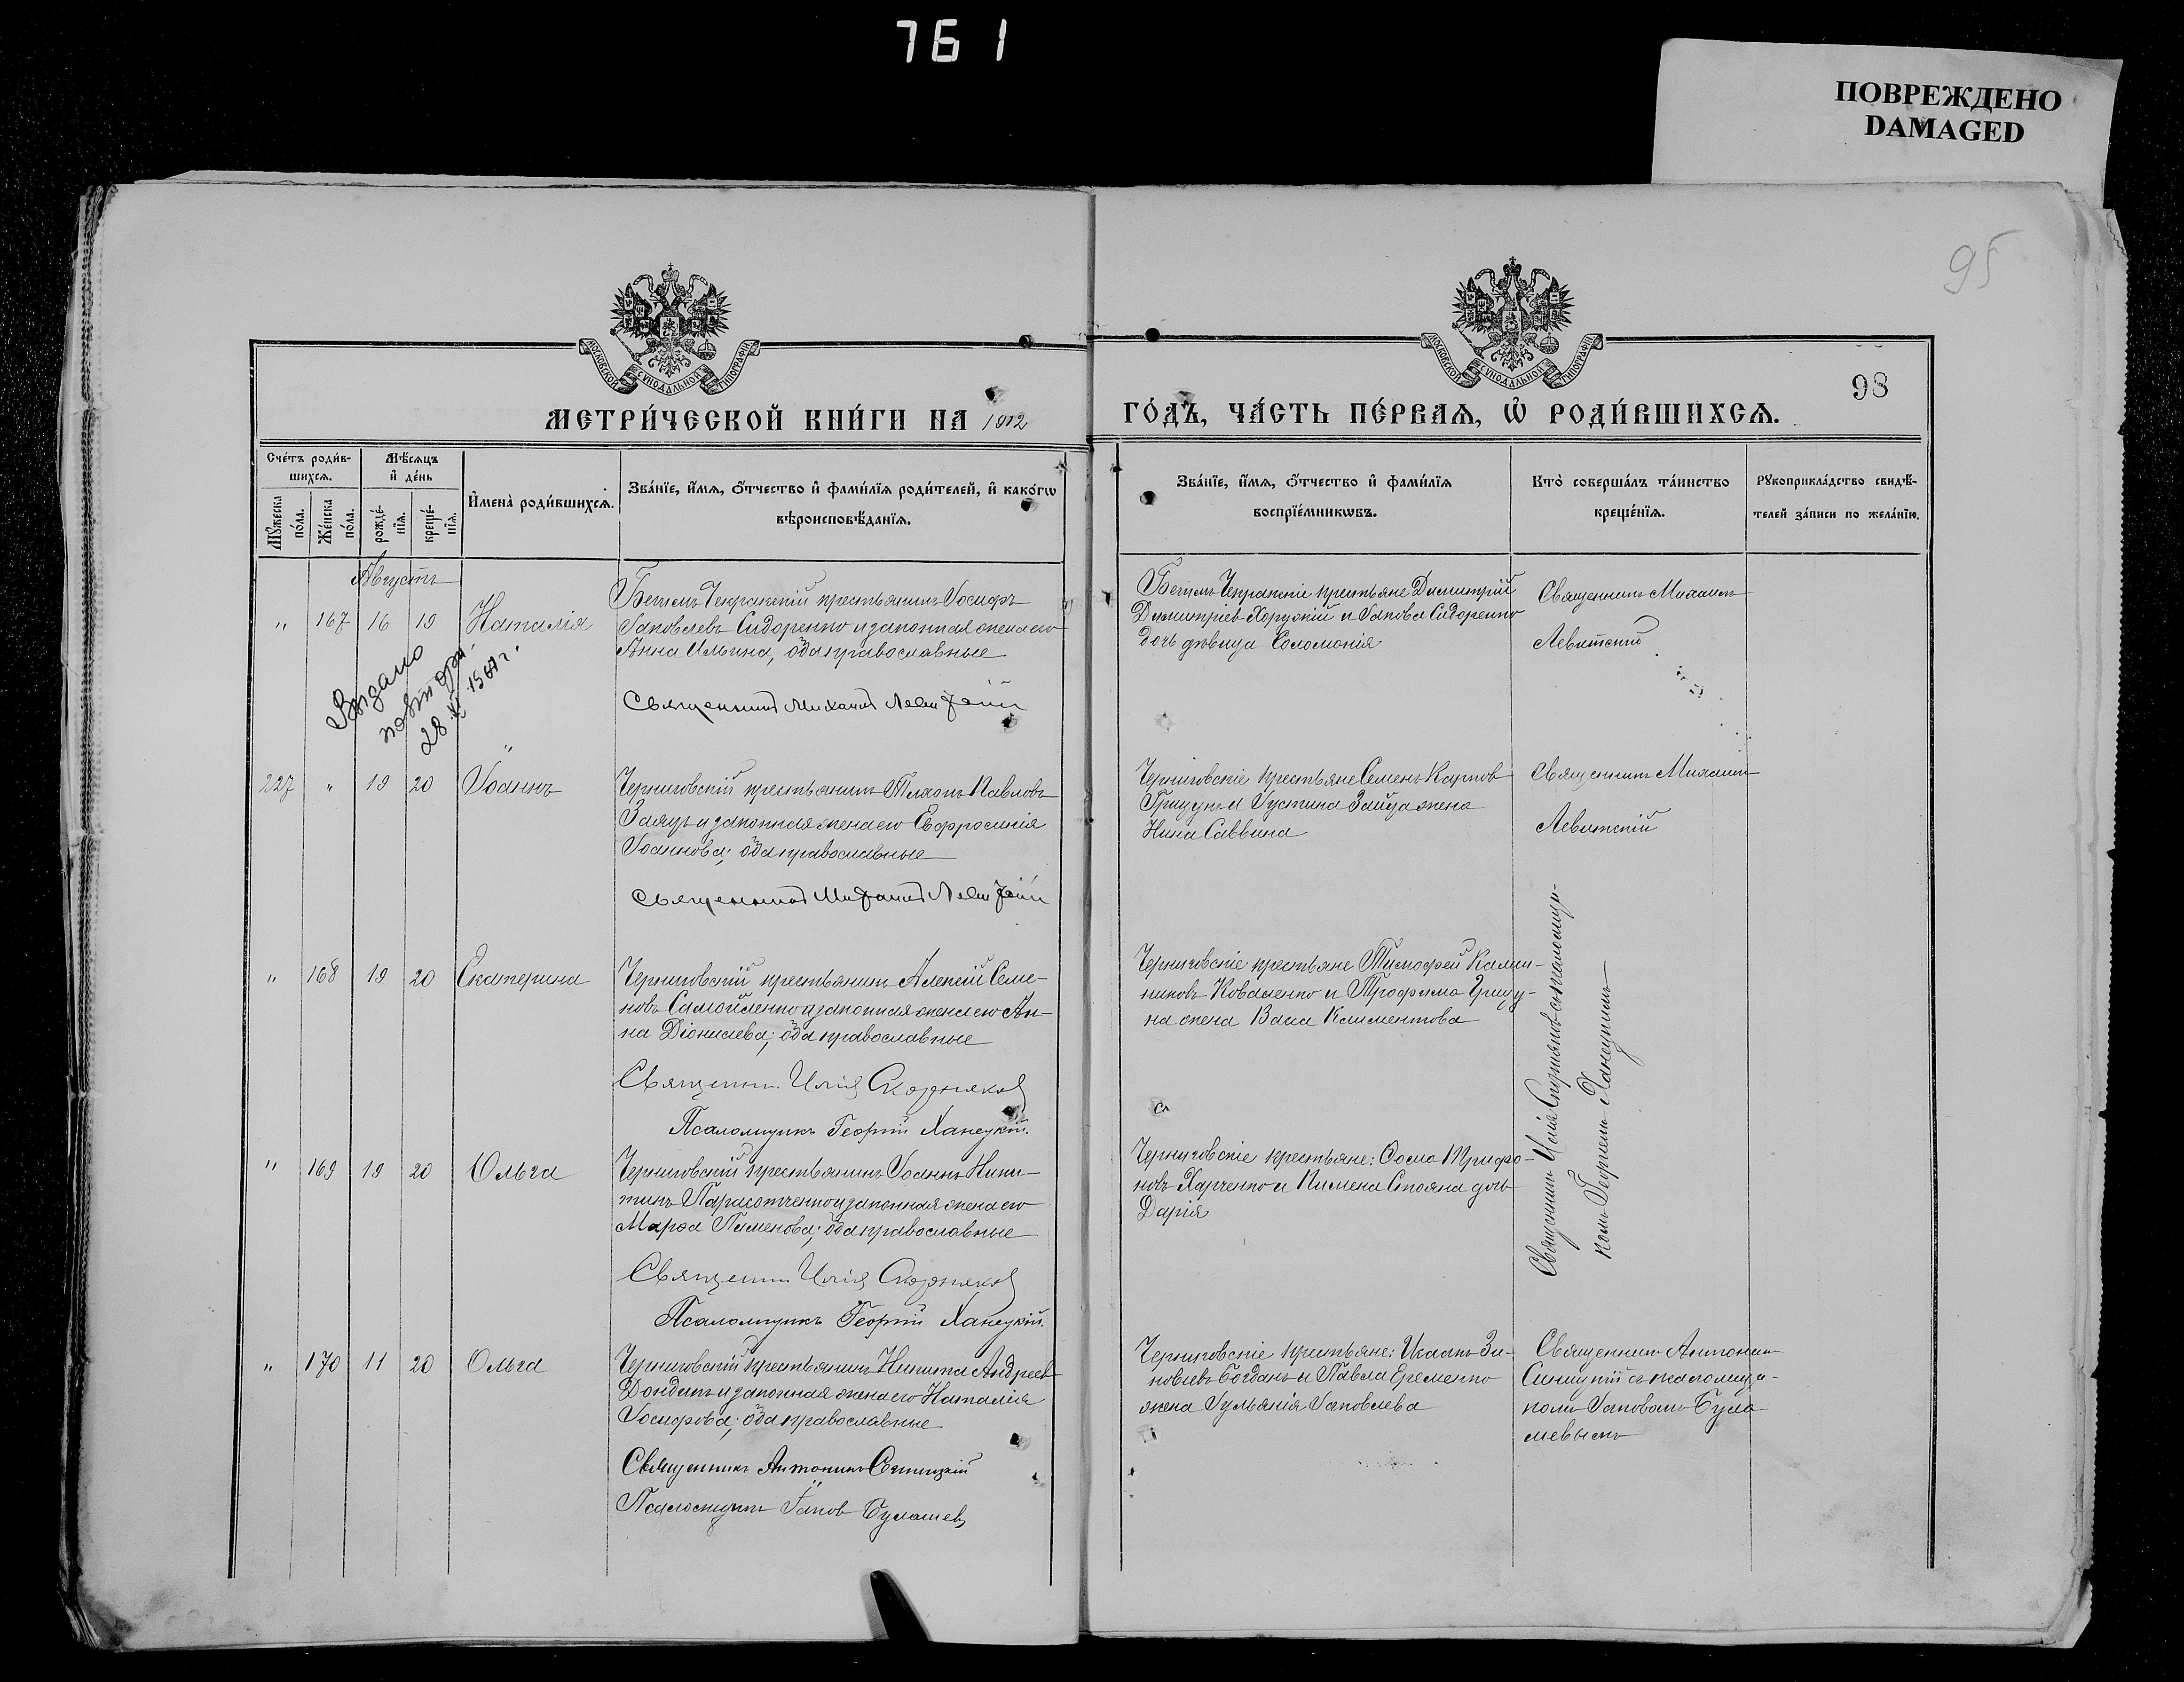 761
ПОВРЕЖДЕНО
DAMAGED
95
98
МОСКОВСКОЙ СѴНОДАЛЬНОЙ ТИПОГРАФІИ
МОСКОВСКОЙ СѴНОДАЛЬНОЙ ТИПОГРАФІИ
МЕТРИ́ЧЕСКОЙ КНИ́ГИ НА 1912
ГО́ДЪ, ЧА́СТЬ ПЕ́РВАѦ, Ѽ РОДИ́ВШИХСѦ.
Сче́тъ роди́в-
шихсѧ.
Мꙋ́жеска
по́ла.
Же́нска
по́ла.
Мѣ́сѧцъ
и҆ де́нь
рожде́-
нїѧ.
креще́-
нїѧ.
И҆мена̀ роди́вшихсѧ.
Зва́нїе, и҆́мѧ, ѻ҆́тчество и҆ фами́лїѧ роди́телей, и҆ како́гѡ
вѣроисповѣ́данїѧ.
Зва́нїе, и҆́мѧ, ѻ҆́тчество и҆ фами́лїѧ
воспрїе́мникѡвъ.
Кто̀ соверша́лъ та́инство
креще́нїѧ.
Рꙋкоприкла́дство свидѣ́-
телей за́писи по жела́нїю.
Августъ
" 167 16 19 Наталія
крестьянинъ Іосифъ
Іаковлевъ Сидоренко и законная жена его
Анна Ильина, оба православные
Священникъ Михаилъ Левитскій
крестьяне Димитрій
Димитріевъ Хоружій и Іакова Сидоренко
дочь дѣвица Соломонія
Священникъ Михаилъ
Левитскій
Выдано
повторн.
28
227 " 19 20 Іоаннъ
Черниговскій крестьянинъ Павловъ
Заяцъ и законная жена его Евфросинія
Іоаннова; оба православные
Священникъ Михаилъ Левитскій
Черниговскіе крестьяне Семенъ Карповъ
Грицунъ и Іустина Зайца жена
Нина Саввина
Священникъ Михаилъ
Левитскій
" 168 19 20 Екатерина
Черниговскій крестьянинъ Алексій Семе-
новъ Самойленко и законная жена его Ан-
на Діонисіева; оба православные
Священник Илія Скорняковъ
Псаломщикъ Георгій Ханецкій.
Черниговскіе крестьяне Тимофей Калин-
никовъ Коваленко и Трофима Грицу-
на жена Васса Климентова
Священникъ Илія Скорняковъ съ псаломщи-
комъ Георгіемъ Ханецкимъ
" 169 19 20 Ольга
Черниговскій крестьянинъ Іоаннъ Ники-
тинъ и законная жена его
Марфа Пименова; оба православные
Священник Илія Скорняковъ
Псаломщикъ Георгій Ханецкій.
Черниговскіе крестьяне: Трифо-
новъ Харченко и Пимена Стояна дочь
Дарія
" 170 11 20 Ольга
Черниговскій крестьянинъ Никита Андреевъ
Дондикъ и законная жена его Наталія
Іосифова; оба православные
Священникъ Антонинъ Синицкій
Псаломщикъ Іаковъ Булашевъ
Черниговскіе крестьяне: Зи-
новіевъ Богданъ и Павла Еременко
жена Іуліанія Іаковлева
Священникъ Антонинъ
Синицкій съ псаломщи-
комъ Іаковомъ Була-
шевымъ